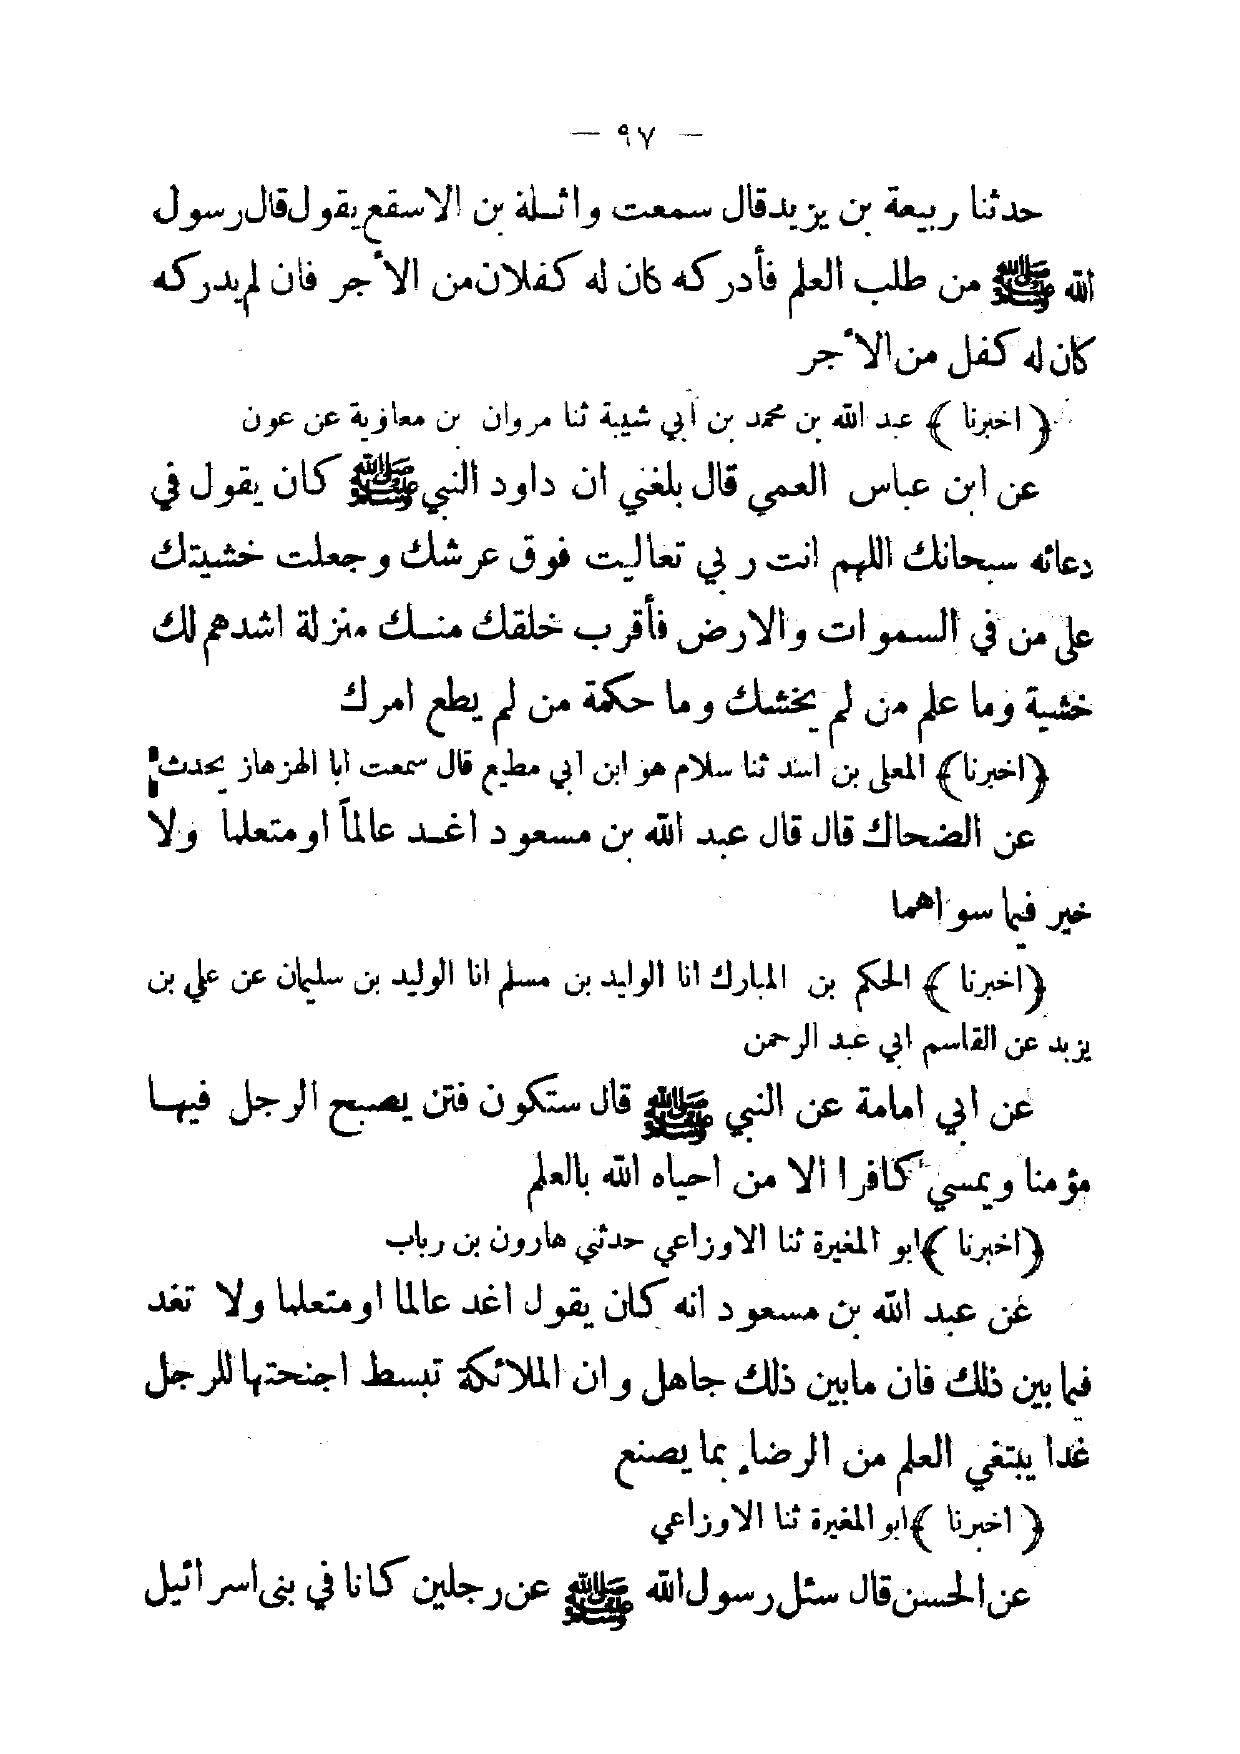 — ٩٧ —
حدثنا ربيعة بن يزيد قال سمعت واثلة بن الاسقع يقول قال رسول
الله ﷺ من طلب العلم فأدركه كان له كفلان من الأجر فان لم يدركه
كان له كفل من الأجر
﴿ اخبرنا ﴾ عبد الله بن محمد بن أبي شيبة ثنا مروان بن معاوية عن عون
عن ابن عباس العمي قال بلغني ان داود النبي ﷺ كان يقول في
دعائه سبحانك اللهم انت ربي تعاليت فوق عرشك وجعلت خشيتك
على من في السموات والارض فأقرب خلقك منك منزلة اشدهم لك
خشية وما علم من لم يخشك وما حكمة من لم يطع امرك
﴿اخبرنا﴾ المعلى بن اسد ثنا سلام هو ابن ابي مطيع قال سمعت ابا الهزهاز يحدث
عن الضحاك قال قال عبد الله بن مسعود اغد عالماً او متعلما ولا
خير فيما سواهما
﴿اخبرنا ﴾ الحكم بن المبارك انا الوليد بن مسلم انا الوليد بن سليمان عن علي بن
يزيد عن القاسم ابي عبد الرحمن
عن ابي امامة عن النبي ﷺ قال ستكون فتن يصبح الرجل فيها
مؤمنا ويمسي كافرا الا من احياه الله بالعلم
﴿اخبرنا ﴾ابو المغيرة ثنا الاوزاعي حدثني هارون بن رباب
عن عبد الله بن مسعود انه كان يقول اغد عالما او متعلما ولا تغد
فيما بين ذلك فان مابين ذلك جاهل وان الملائكة تبسط اجنحتها للرجل
غدا يبتغي العلم من الرضاء بما يصنع
﴿ اخبرنا ﴾ابو المغيرة ثنا الاوزاعي
عن الحسن قال سئل رسول الله ﷺ عن رجلين كانا في بنى اسرائيل